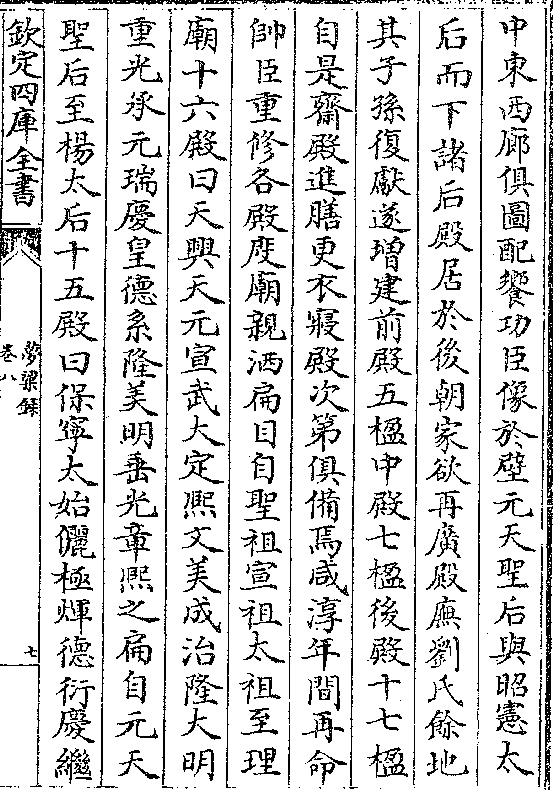 中東西廊俱圖配饗功臣像於壁元天聖后與昭憲太
后而下諸后殿居於後朝家欲再廣殿廡劉氏餘地
其子孫復獻遂增建前殿五楹中殿七楹後殿十七楹
自是齋殿進膳更衣寢殿次第俱備焉咸淳年間再命
帥臣重修各殿度廟親洒扁目自聖祖宣祖太祖至理
廟十六殿曰天興天元宣武大定熙文美成治隆大明
重光承元瑞慶皇德系隆美明垂光章熙之扁自元天
聖后至楊太后十五殿曰保寧太始儷極輝德衍慶繼
欽定四庫全書
夢粱録
卷八
七